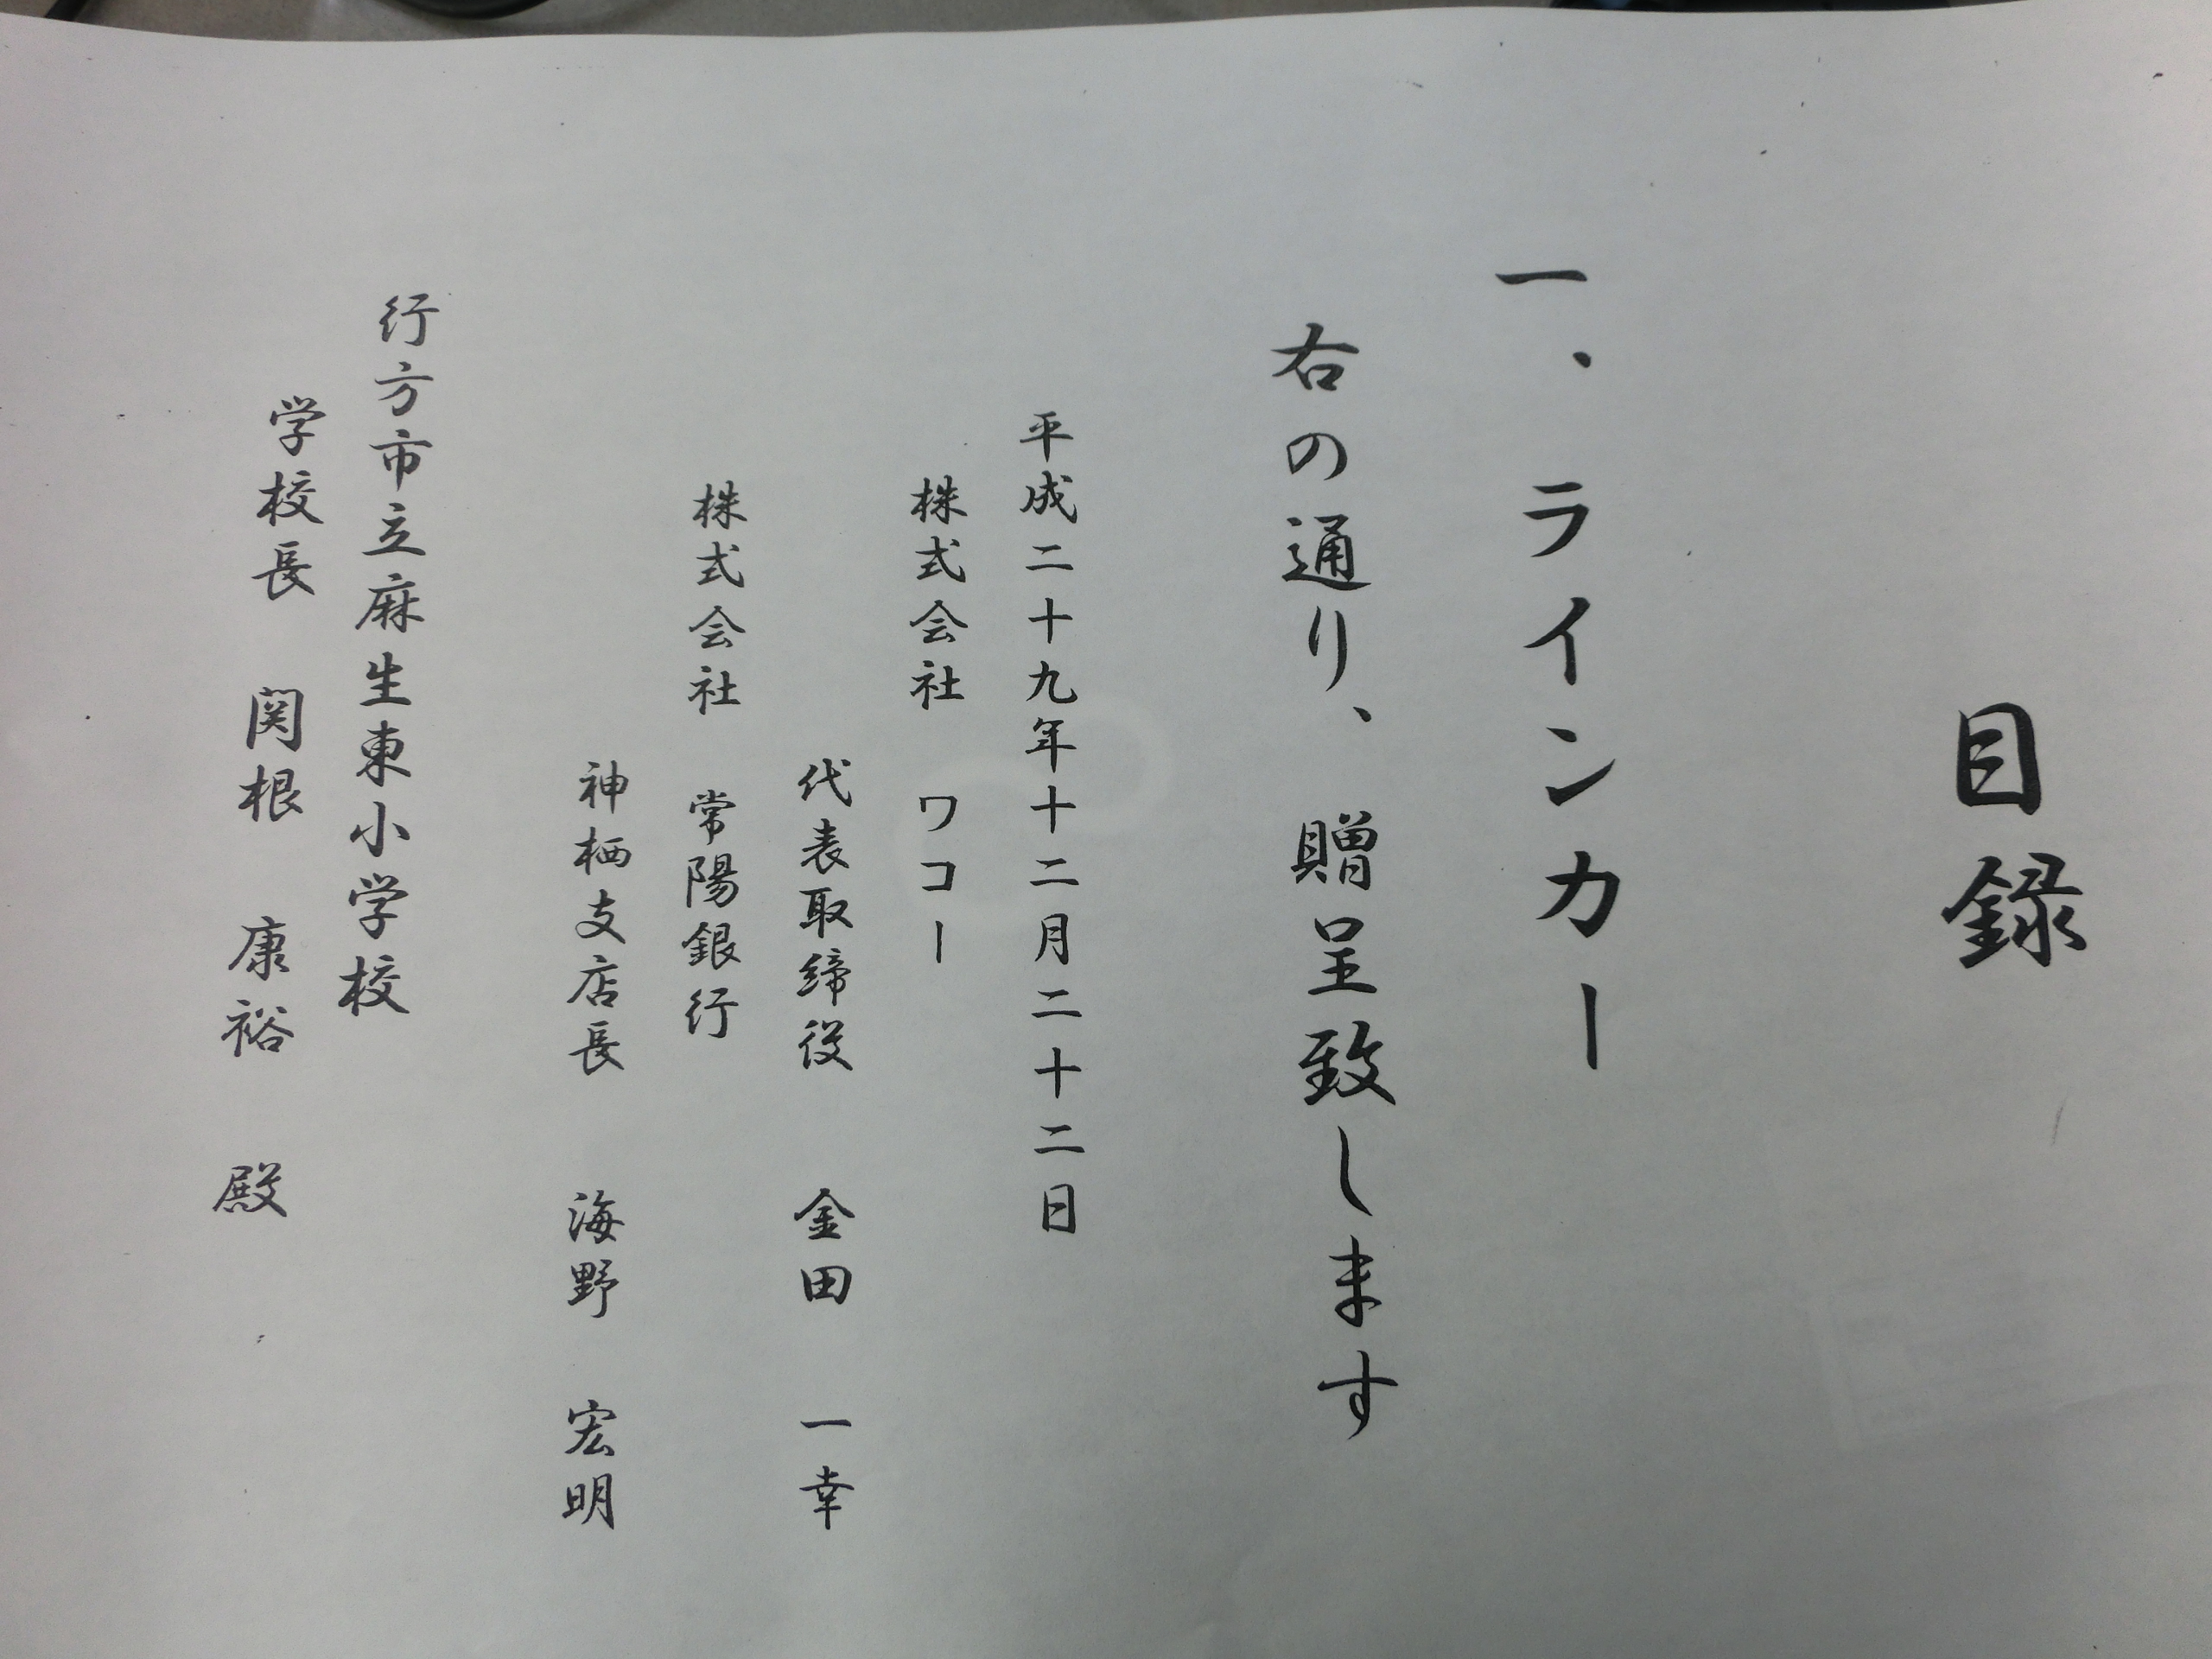 目録
一、ラインカー
右の通り、贈呈致します
平成二十九年十二月二十二日
株式会社 ワコー
代表取締役 金田 一幸
株式会社 常陽銀行
神栖支店長 海野 宏明
行方市立麻生東小学校
学校長 関根 康裕 殿